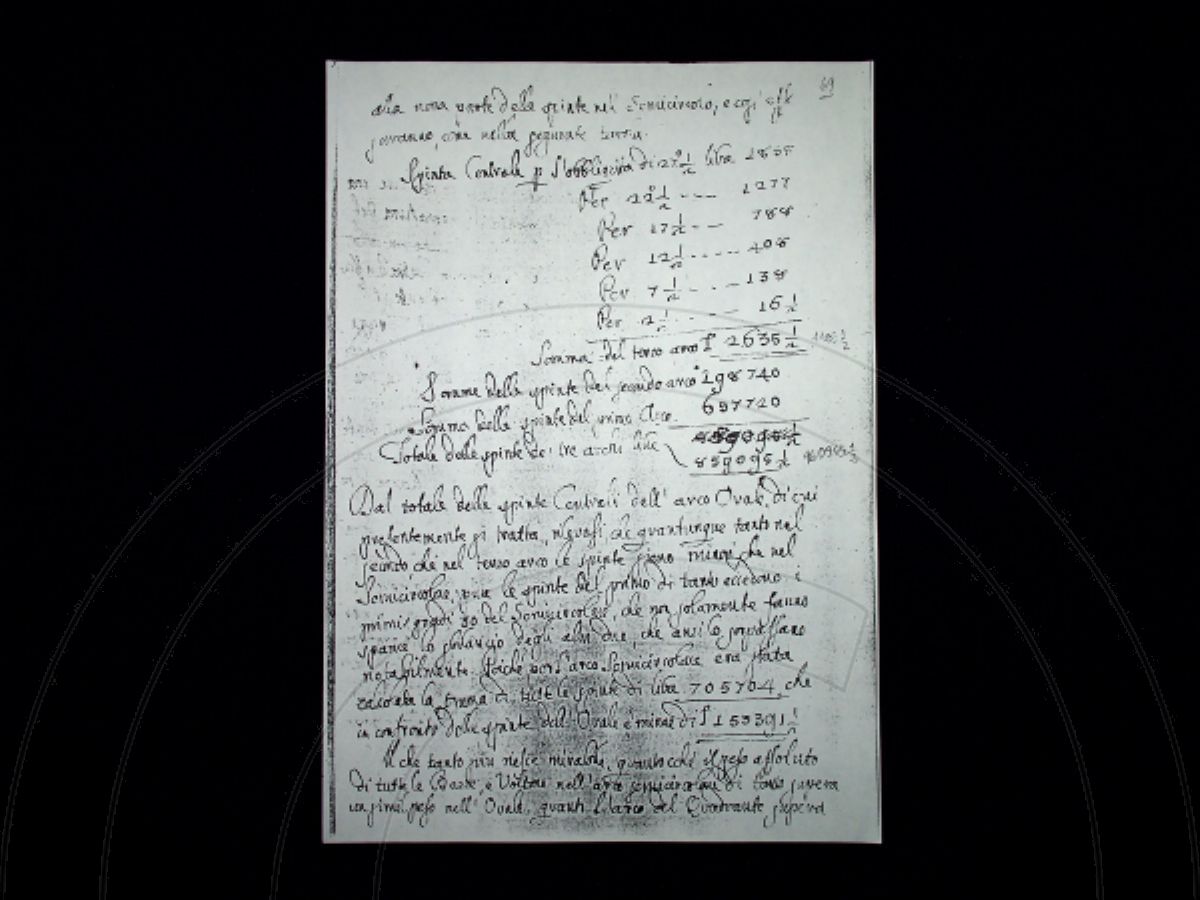 69
alla nona parte delle spinte nel Semicircolo, e così
saranno, come nella seguente
Spinta Centrale p l'obbliquità di 27° 1/2 libre 1835
Per 22° 1/2 --- 1277
Per 17 1/2 -- 788
Per 12 1/2 ----- 408
Per 7 1/2 - - - 138
Per 2 1/2 ------ 16 1/2
Somma del terzo arco 2635 1/2
Somma delle spinte del secondo arco 198740
Somma delle spinte del primo Arco 657720
Totale delle spinte de' tre archi libre 859095 1/2
Dal totale delle spinte Centrali dell' arco Ovale, di cui
presentemente si tratta, rilevasi, che quantunque tanto nel
secondo, che nel terzo arco le spinte sieno minori, che nel
Semicircolare, pure le spinte del primo di tanto eccedono i
primi gradi 30 del Semicircolare, che non solamente fanno
lo sbilancio degli altri due, che anzi lo
notabilmente. Poiché per l'arco Semicircolare era stata
la somma di tutte le spinte di libre 705704, che
in confronto delle spinte dell' Ovale è minore di 153391 1/2
Il che tanto più riesce mirabile, quanto che il peso assoluto
di tutte le e Voltoni nell' arco semicircolare di
un simil peso nell' Ovale, quanto l'arco del Quadrante supera